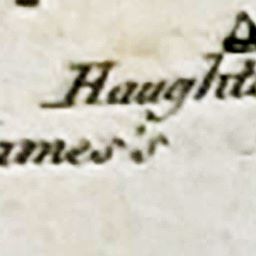 Haught
ames's